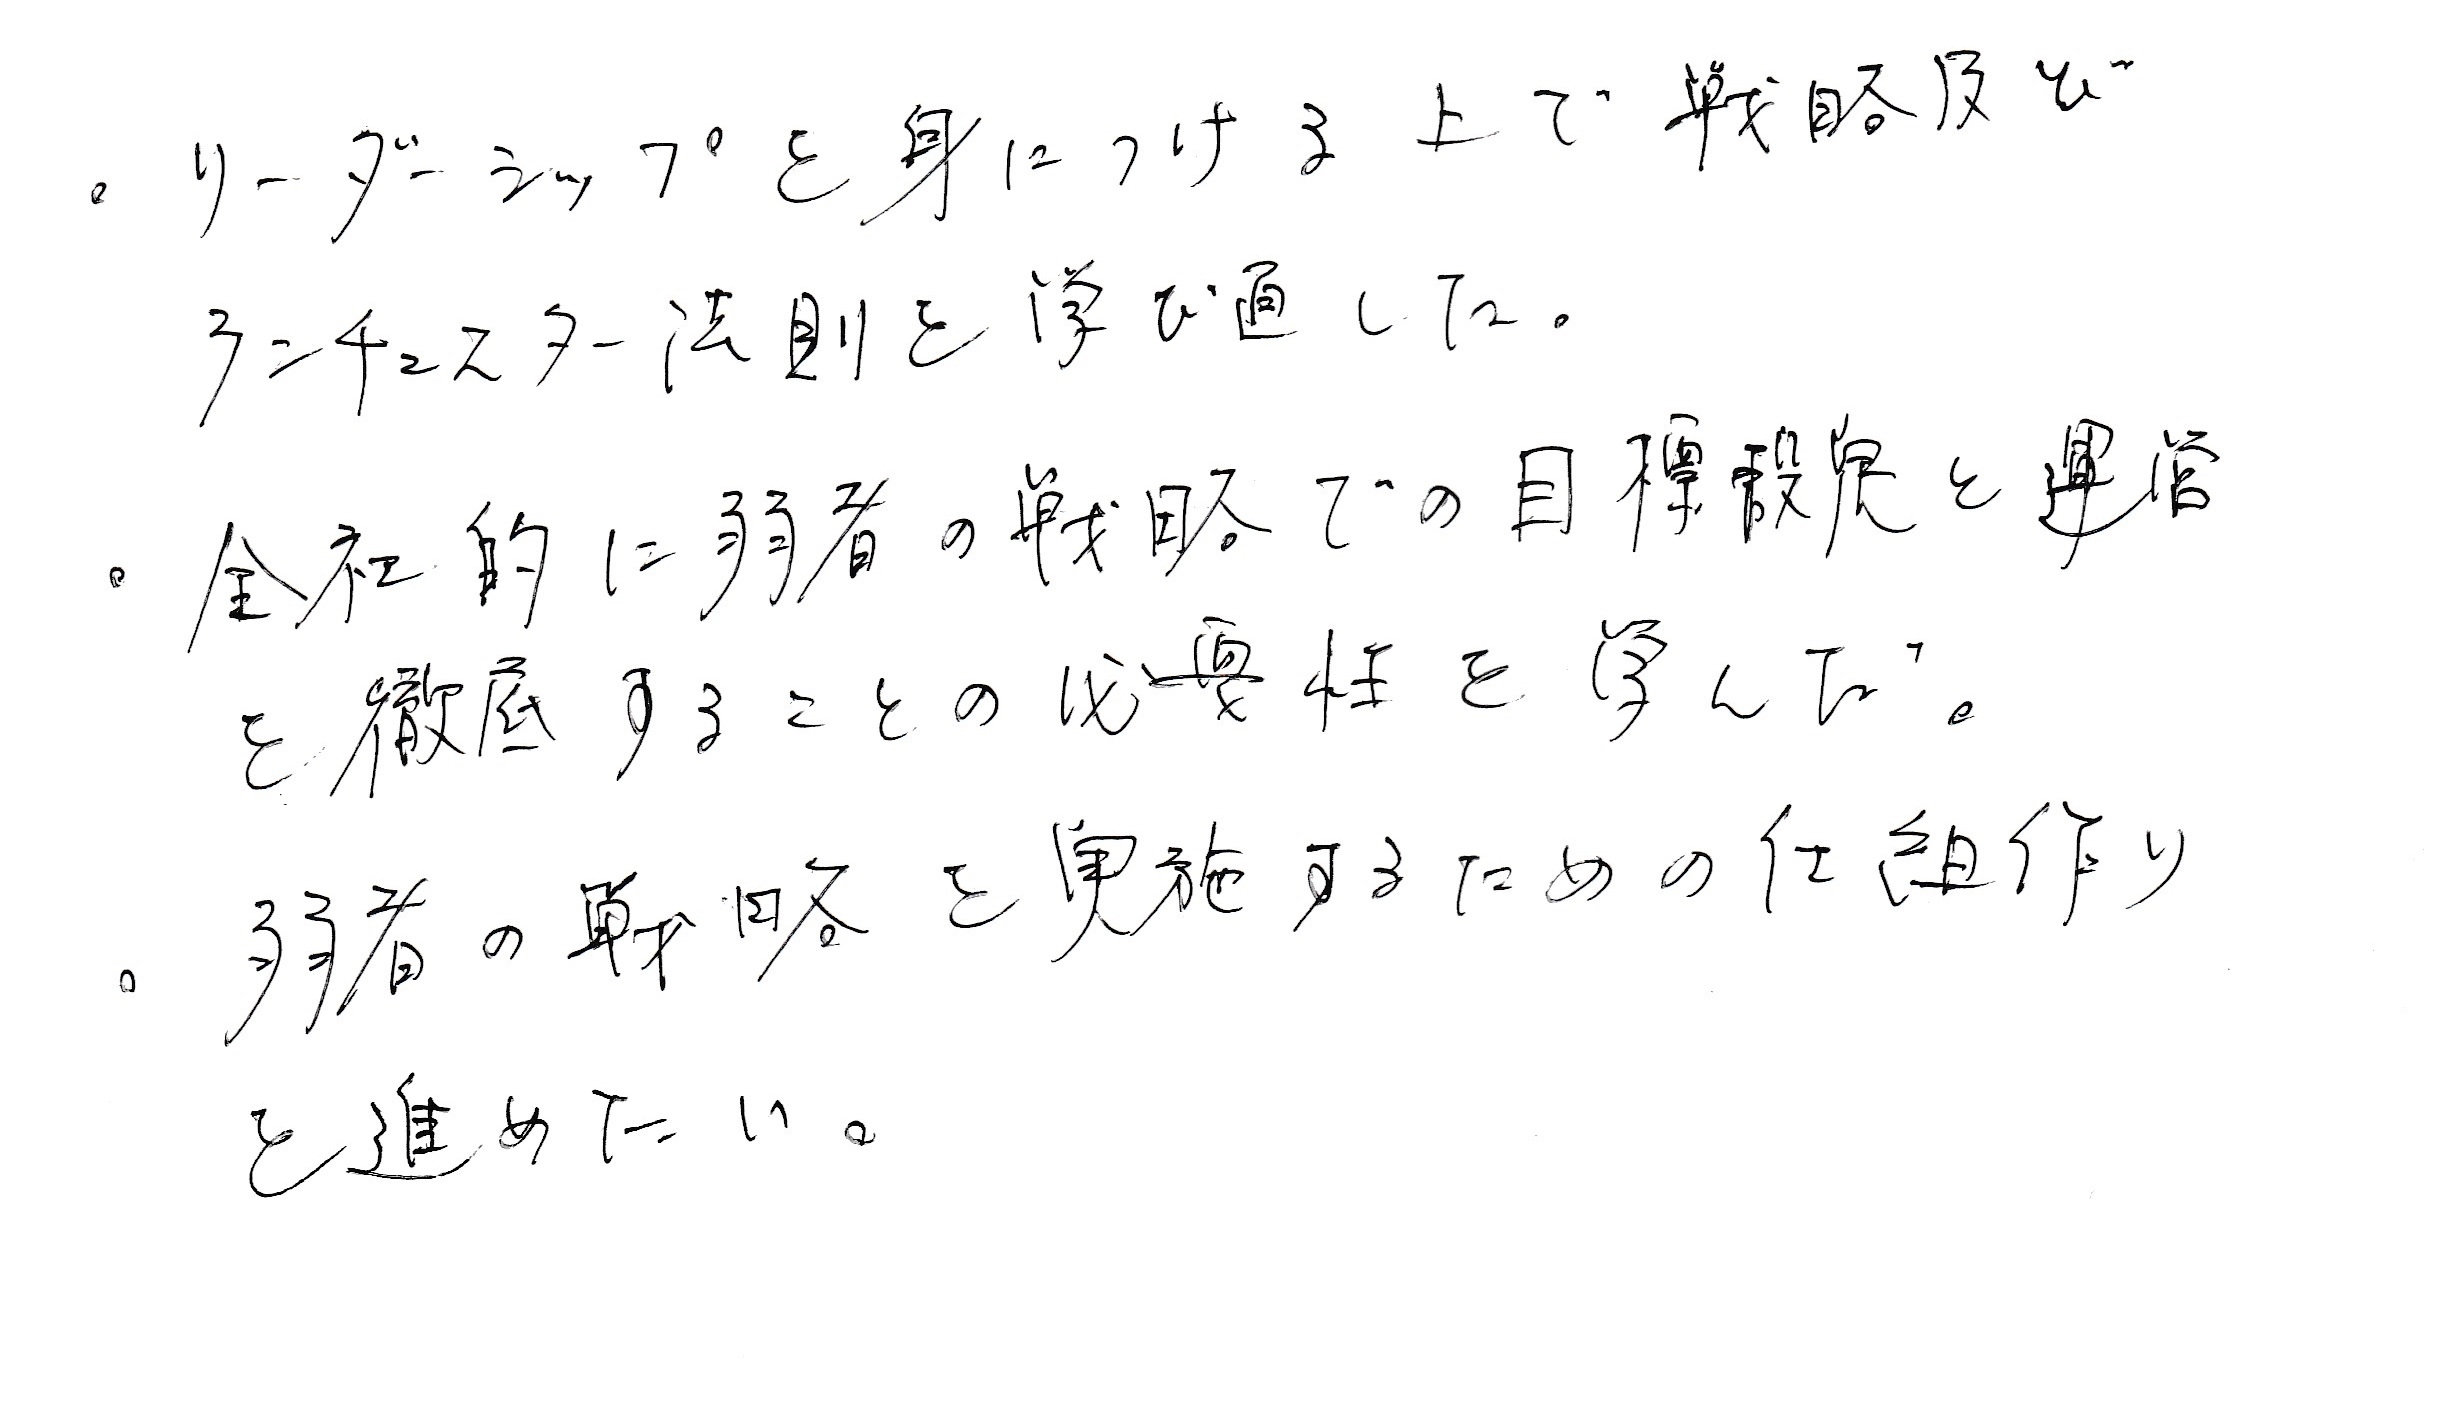 。リーダーシップを身につける上で戦略及び
ランチェスター法則を学び直した。
。全社的に弱者の戦略での目標設定と運営
を徹底することの必要性を学んだ。
。弱者の戦略を実施するための仕組作り
を進めたい。